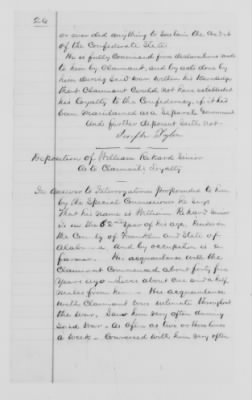 26
or ever did anything to sustain the credit
of the Confederate State
He is fully convinced from declarations made
to him by Claimant, and by acts done by
him during said war within his knowledge
that Claimant could not have established
his loyalty to the Confederacy, if it had
been maintained as a Separate Government
And further deponent saith not
Joseph Tyler
Deposition of William Rikard Senior
As to Claimant's Loyalty
In answer to Interrogatories propounded to him
by the Special Commissioner he says
That his name is William Rikard Senior
is in the 62nd year of his age, resides in
the County of Franklin and State of
Alabama and by occupation is a
farmer. His acquaintance with the
Claimant commenced about forty five
years ago - Lives about one and a half
miles from him - His acquaintance
with Claimant was intimate throughout
the war. Saw him very often during
said War - As often as two or three times
a week - Conversed with him very often